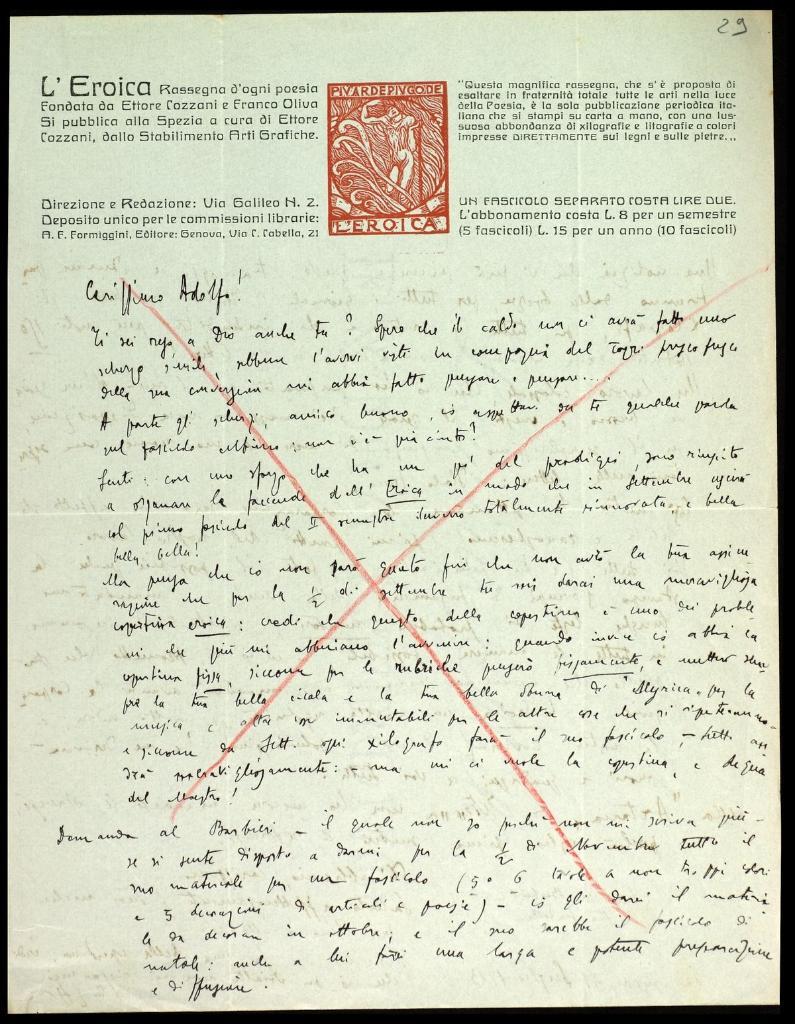 29
L'Eroica Rassegna d'ogni poesia
Fondata da Ettore Cozzani e Franco Oliva
Si pubblica alla Spezia a cura di Ettore
Cozzani, dallo Stabilimento Arti Grafiche.
Direzione e Redazione: Via Galileo N. 2.
Deposito unico per le commissioni librarie:
A. F. Formiggini, Editore: Genova, Via C. Cabella, 21
PIVARDEPIVGODE
L'EROICA
"Questa magnifica rassegna, che s'è proposta di
esaltare in fraternità totale tutte le arti nella luce
della Poesia, è la sola pubblicazione periodica ita-
liana che si stampi su carta a mano, con una lus-
suosa abbondanza di xilografie e litografie a colori
impresse DIRETTAMENTE sui legni e sulle pietre...
UN FASCICOLO SEPARATO COSTA LIRE DUE.
L'abbonamento costa L. 8 per un semestre
(5 fascicoli) L. 15 per un anno (10 fascicoli)
Carissimo Adolfo!
Ti sei reso a Dio anche tu? Spero che il caldo non ci avrà fatto uno
scherzo simile, sebbene l'averti visto in compagnia del fresco fresco
della sua conversione mi abbia fatto pensare e pensare....
A parte gli scherzi, amico buono, io aspettavo da te qualche parola
sul fascicolo : non c'è più
Senti: con uno sforzo che ha un po' del prodigio, sono riuscito
a organare la faccenda dell'Eroica in modo che in settembre uscirà
col primo fascicolo del II semestre totalmente rinnovata, e bella
bella, bella!
Ma pensa che io non sarò quieto fin che non avrò la tua
che per la ½ di settembre tu mi darai una meravigliosa
copertina eroica: credi che questo della copertina è uno dei proble-
mi che più mi : quando invece io abbia la
copertina fissa, siccome per le rubriche penserò fissamente, e metterò sem-
pre la tua bella cicala e la tua bella donna di per la
musica, e altre cose immutabili per le altre cose che si ripeteranno -
e siccome da Sett. ogni xilografo farà il suo fascicolo, - tutto an-
drà meravigliosamente: - ma mi ci vuole la copertina, e degna
del Maestro!
Domanda al Barbieri - il quale non so perché non mi scriva più -
se si sente disposto a darmi per la ½ di Novembre tutto il
suo materiale per un fascicolo (5 o 6 tavole a non troppi colori
e 5 decorazioni di articoli e poesie) - io gli darei il materia-
le da decorare in ottobre; e il suo sarebbe il fascicolo di
natale: anche a lui farei una larga e potente preparazione
e diffusione.